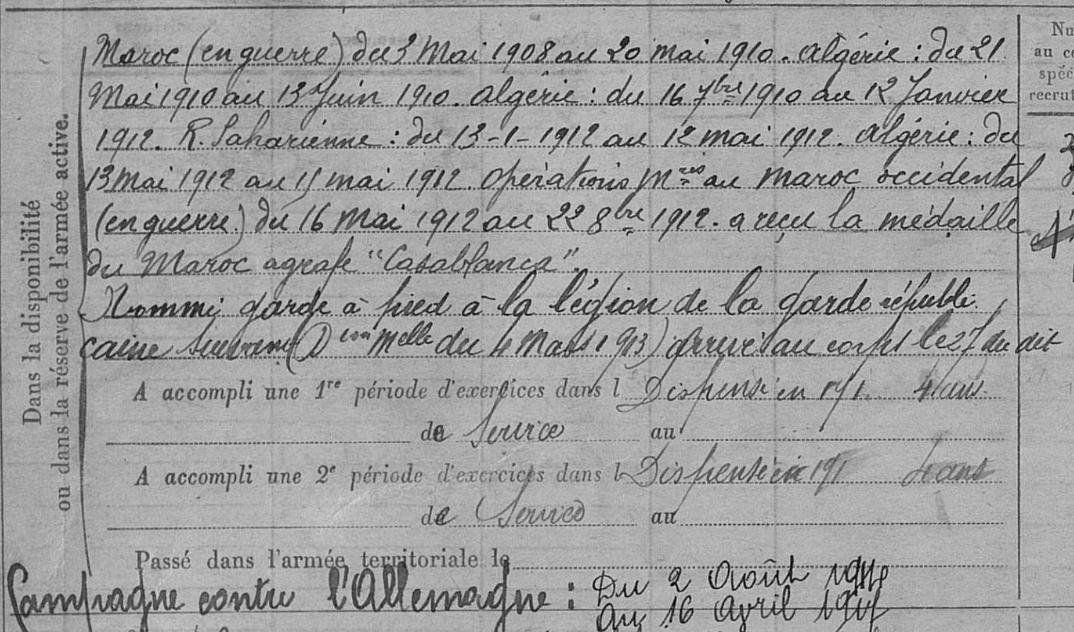 Maroc (en guerre) du 3 Mai 1908 au 20 mai 1910. Algérie : du 21
Mai 1910 au 13 Juin 1910. Algérie : du 16 7bre 1910 au 12 Janvier
1912. R. Saharienne : du 13-1-1912 au 12 mai 1912. Algérie : du
13 Mai 1912 au 15 mai 1912. Opérations mres au Maroc occidental
(en guerre) du 16 Mai 1912 au 22 8bre 1912. a reçu la médaille
du Maroc agrafe "Casablanca".
Nommé garde à pied à la légion de la Garde républi
caine suivant (Don Melle du 4 Mars 1913) arrivé au corps le 27 du dit
A accompli une 1re période d'exercices dans l Dispensé en 191 4 ans
de Service au
A accompli une 2e période d'exercices dans l Dispensé en 191 4 ans
de Service au
Passé dans l'armée territoriale le
Campagne contre l'Allemagne : Du 2 Août 1914
Au 16 Avril 1917
Dans la disponibilité
ou dans la réserve de l'armée active.
Nu
au co
spéc
recrut